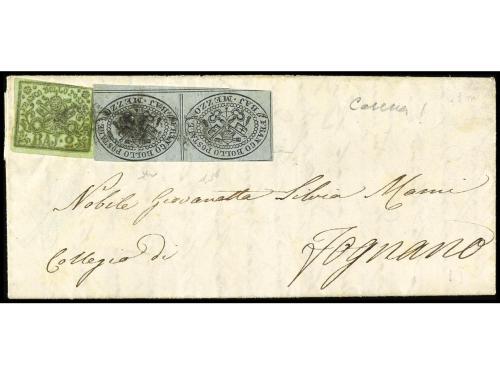 BOLLO
BAJ. 2
FRANCO BOLLO POSTALE
BAJ. MEZZO
FRANCO BOLLO POSTALE
BAJ. MEZZO
Nobile Giovanetta Silvia Mami
Collegio di Fognano